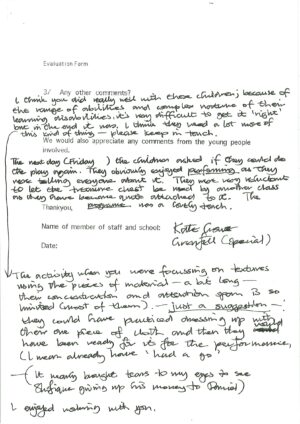 Evaluation Form
3/ Any other comments?
I think you did really well with these children; because of
the range of abilities and complex nature of their
learning disabilities. It's very difficult to get it 'right'
but in the end it was. I think they need a lot more of
this kind of thing - please keep in touch.
We would also appreciate any comments from the young people
involved.
The next day (Friday ) the children asked if they could do
the play again. They obviously enjoyed performing as they
were telling everyone about it. They were very reluctant
to let the treasure chest be used by another class
as they have become quite attached to it. The
Thankyou, programme was a lovely touch.
Name of member of staff and school: Katie
Grenfell (Special)
Date:
The activity when you were focussing on textures
using the pieces of material - a bit long -
their concentration and attention span is so
limited (most of them) - just a suggestion -
they could have practiced dressing up with
their one piece of cloth and then they would
have been ready for it for the performance,
(I mean already have 'had a go'
(It really brought tears to my eyes to see
Shafique giving up his money to Daniel)
I enjoyed working with you.